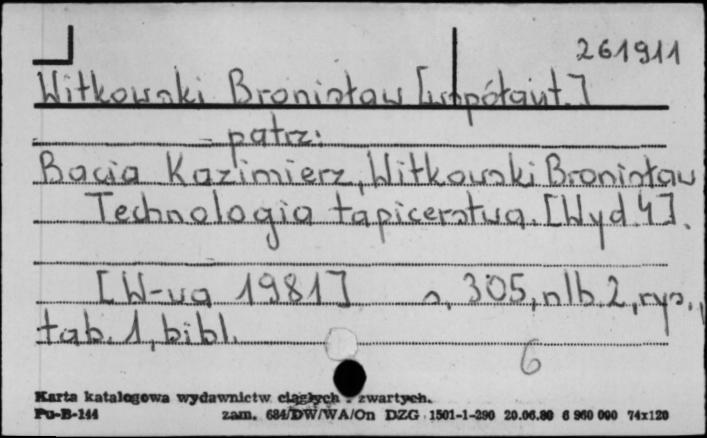 261911
Witkowski Bronisław [współaut.]
patrz:
Bacia Kazimierz, Witkowski Bronisław
Technologia tapicerstwa. [Wyd. 4].
[W-wa 1981] s. 305, nlb. 2, rys.,
tab. 1, bibl.
6
Karta katalogowa wydawnictw ciągłych i zwartych.
Pu-B-144 zam. 684/DW/WA/On DZG 1501-1-290 20.06.80 6 960 000 74x120